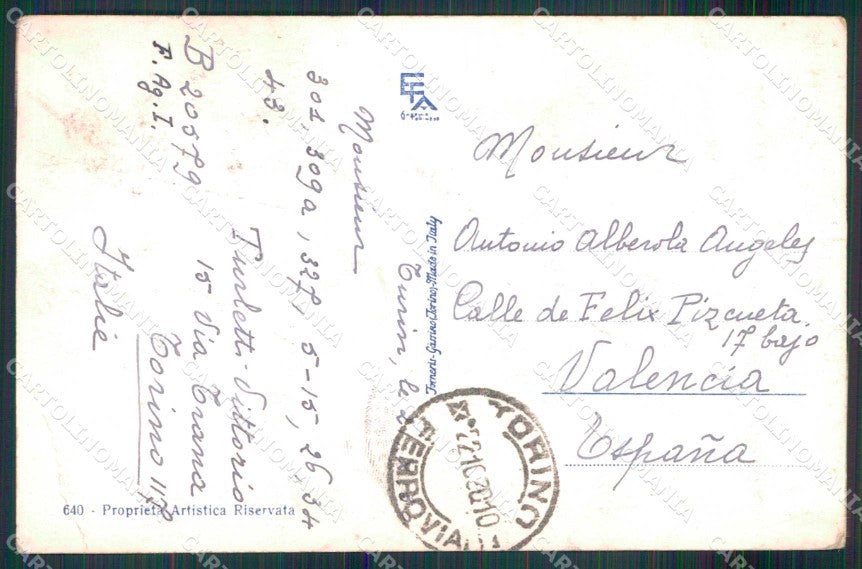 Monsieur
Antonio Alberola Angeles
Calle de Felix Pizcueta.
17 bajo
Valencia
España
Turin, le
Monsieur
301, 309a, 327, 5-15, 26-34
43.
Turletti Vittorio
15 Via Trana
Torino 117
Italie
B 20579
F. Ag. I.
EFA
Forneris-Garrino, Torino-Made in Italy
TORINO
FERROVIA
640 - Proprietà Artistica Riservata
CARTOLINOMANIA